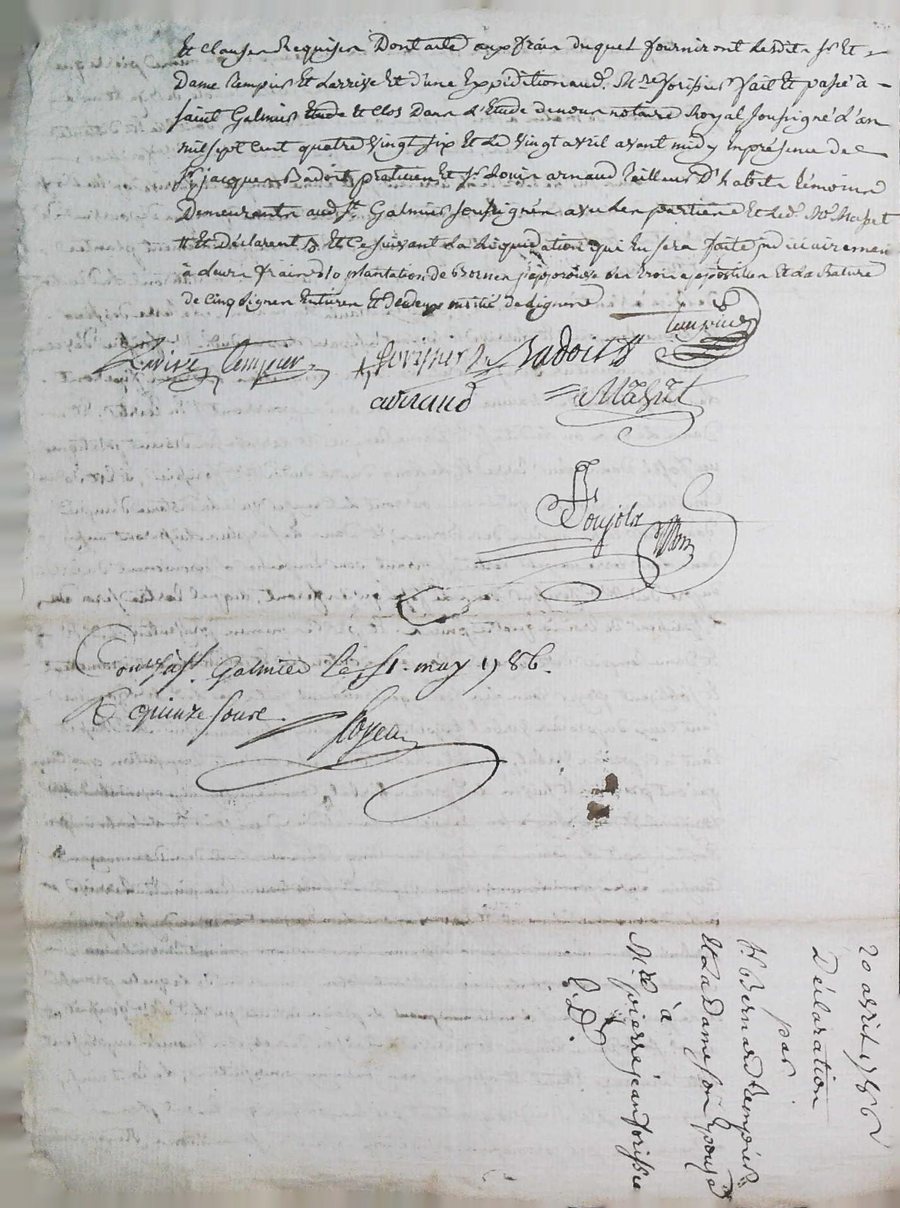 Et Clauses Requises Dont acte aux frais duquel fourniront lesdits sr Et
Dame Et Larrive Et d'une Expédition aud. Mre forissier fait Et passé à
saint Galmier Etude et Clos Dans L'Etude de nous notaire Royal soussigné L'an
mil sept Cent quatre vingt six Et Le vingt avril avant midy En présence de
sr jacques Badoit praticien Et sr Louis arnaud tailleur D'habits témoins
Demeurants aud. St. Galmier soussignés avec Les parties Et led. Mr Mazet
Et Déclarent Et Ce suivant La Liquidation qui En sera faite judiciairement
à Leurs frais plantation de Bornes approuvé apposition Et La Rature
de Cinq Lignes Entieres Et de deux moitié de Lignes
Larrive forissier Badoit
arnaud Mazet
Poujolz
Con. à St. Galmier le 1 may 1786.
R quinze sous
20 avril 1786
Déclaration
par
sr Bernard
Et La Dame son Epouse
à
Mre pierre jean forissier
E. D.